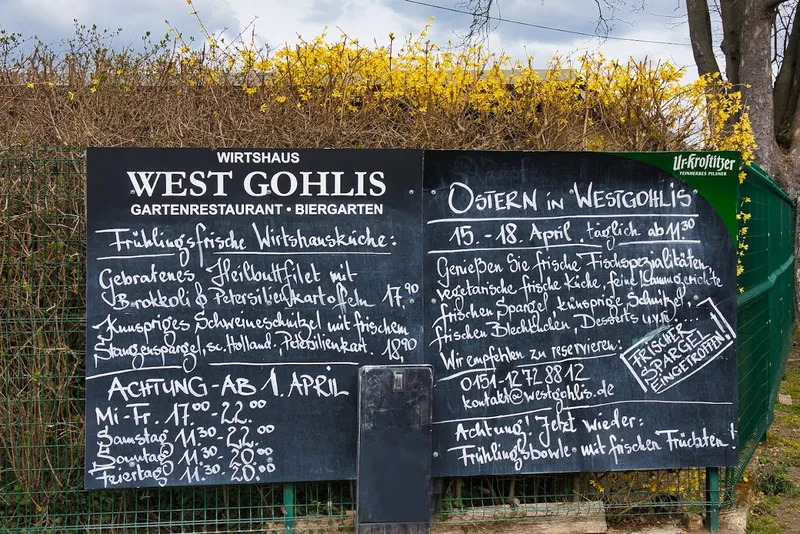 WIRTSHAUS
WEST GOHLIS
GARTENRESTAURANT • BIERGARTEN
Frühlingsfrische Wirtshausküche:
Gebratenes Heilbuttfilet mit
Brokkoli & Petersilienkartoffeln 17,90
Knuspriges Schweineschnitzel mit frischem
Stangenspargel, sc. Holland., Petersilienkart. 18,90
ACHTUNG - AB 1. APRIL
Mi-Fr. 17.00 - 22.00
Samstag 11.30 - 22.00
Sonntag 11.30 - 20.00
Feiertag 11.30 - 20.00
Ur-Krostitzer
FEINHERBES PILSNER
OSTERN in WESTGOHLIS
15. - 18. April täglich ab 11.30
Genießen Sie frische Fischspezialitäten,
vegetarische frische Küche, feine Lammgerichte
frischen Spargel, knusprige Schnitzel,
frischen Blechkuchen, Desserts u.v.m...
FRISCHER
SPARGEL
EINGETROFFEN!
Wir empfehlen zu reservieren:
0151-1272 88 12
kontakt@westgohlis.de
Achtung! Jetzt wieder:
Frühlingsbowle mit frischen Früchten!